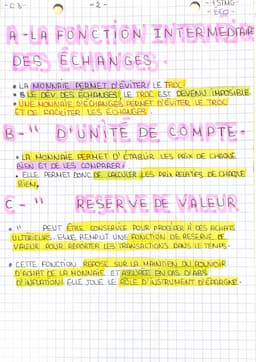 - C 3 -
- 2 -
- 1 STMG -
- ECO -
A - LA FONCTION INTERMEDIAIRE
DES ÉCHANGES.
• LA MONNAIE PERMET D'ÉVITER LE TROC
• & LE DEV. DES ECHANGES, LE TROC EST DEVENU IMPOSSIBLE.
• UNE MONNAIE D'ECHANGES PERMET D'ÉVITER LE TROC
ET DE FACILITER LES ECHANGES.
B - " D'UNITÉ DE COMPTE.
• LA MONNAIE PERMET D'ETABLIR LES PRIX DE CHAQUE
BIEN ET DE LES COMPARER.
• ELLE PERMET DONC DE CALCULER LES PRIX RELATIFS DE CHAQUE
BIEN.
C - " RESERVE DE VALEUR
• " PEUT ÊTRE CONSERVÉE POUR PROCEDER A DES ACHATS
ULTERIEURS. ELLE REMPLIT UNE FONCTION DE RESERVE DE
VALEUR POUR REPORTER LES TRANSACTIONS DANS LE TEMPS.
• CETTE FONCTION REPOSE SUR LA MAINTIEN DU POUVOIR
D'ACHAT DE LA MONNAIE ET ASSUREE EN CAS D'ABS
D'INFLATION. ELLE JOUE LE RÔLE D'INSTRUMENT D'EPARGNE.